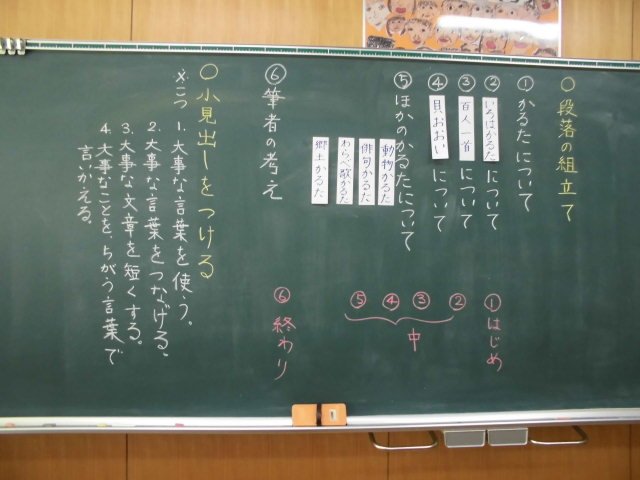 ○段落の組立て
①かるたについて
②いろはかるたについて
③百人一首について
④貝おおいについて
⑤ほかのかるたについて
動物かるた
俳句かるた
わらべ歌かるた
郷土かるた
⑥筆者の考え
①はじめ
②
③
④
⑤
中
⑥終わり
○小見出しをつける
こつ
1.大事な言葉を使う。
2.大事な言葉をつなげる。
3.大事な文章を短くする。
4.大事なことを、ちがう言葉で
言いかえる。